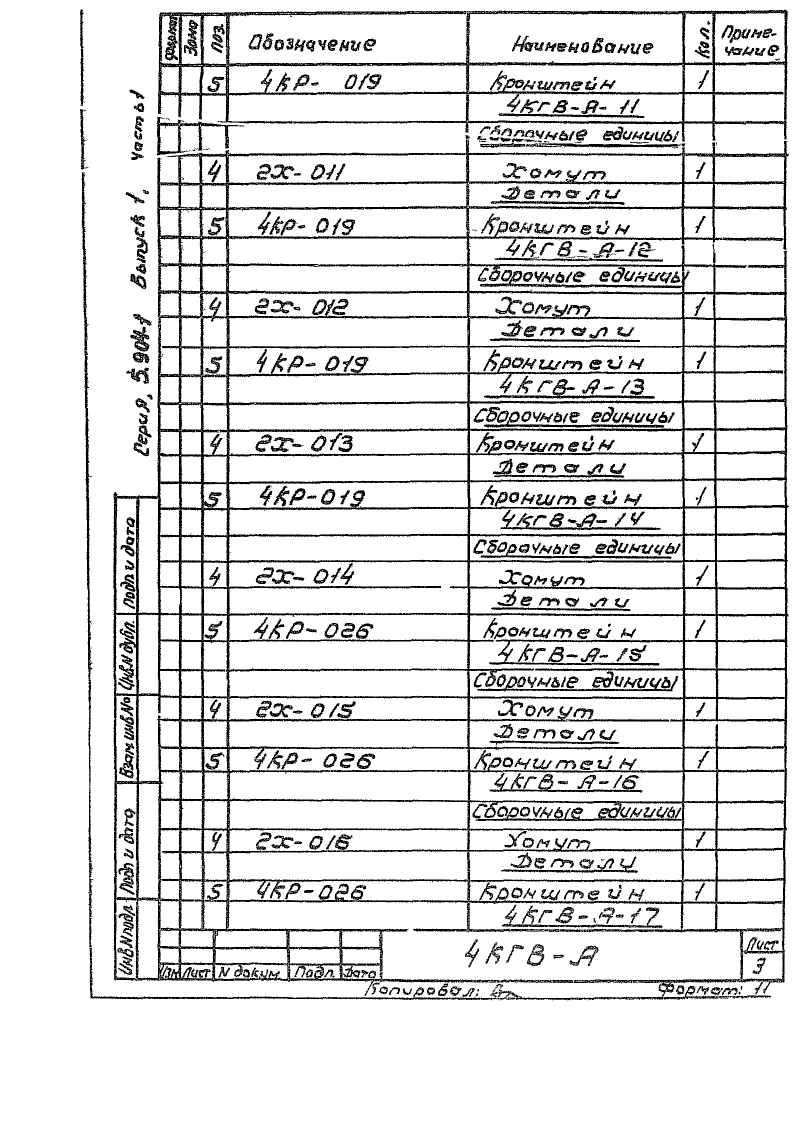 Формат Зона Поз. Обозначение Наименование Кол. Приме-
чание
5 4КР- 019 Кронштейн 1
4КГВ-А-11
Сборочные единицы
4 2Х-011 Хомут 1
Детали
5 4КР-019 Кронштейн 1
4КГВ-А-12
Сборочные единицы
4 2Х-012 Хомут 1
Детали
5 4КР-019 Кронштейн 1
4КГВ-А-13
Сборочные единицы
4 2Х-013 Кронштейн 1
Детали
5 4КР-019 Кронштейн 1
4КГВ-А-14
Сборочные единицы
4 2Х-014 Хомут 1
Детали
5 4КР-026 Кронштейн 1
4КГВ-А-15
Сборочные единицы
4 2Х-015 Хомут 1
Детали
5 4КР-026 Кронштейн 1
4КГВ-А-16
Сборочные единицы
4 2Х-016 Хомут 1
Детали
5 4КР-026 Кронштейн 1
4КГВ-А-17
4КГВ-А
Лист
3
Изм Лист N докум. Подп. Дата
Копировал:
Формат: 11
Серия, 5.904-1 Выпуск 1, часть 1
Инв.N подл. Подп и дата Взам инв.No Инв.N дубл. Подп и дата